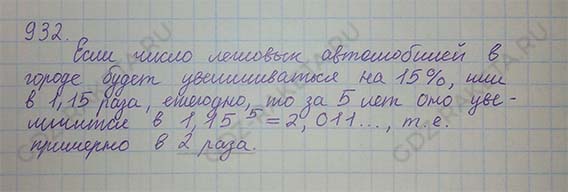 932.
Если число легковых автомобилей в
городе будет увеличиваться на 15%, или
в 1,15 раза, ежегодно, то за 5 лет оно уве-
личится в 1,15⁵ = 2,011..., т.е.
примерно в 2 раза.
GDZ-RAKETA.RU